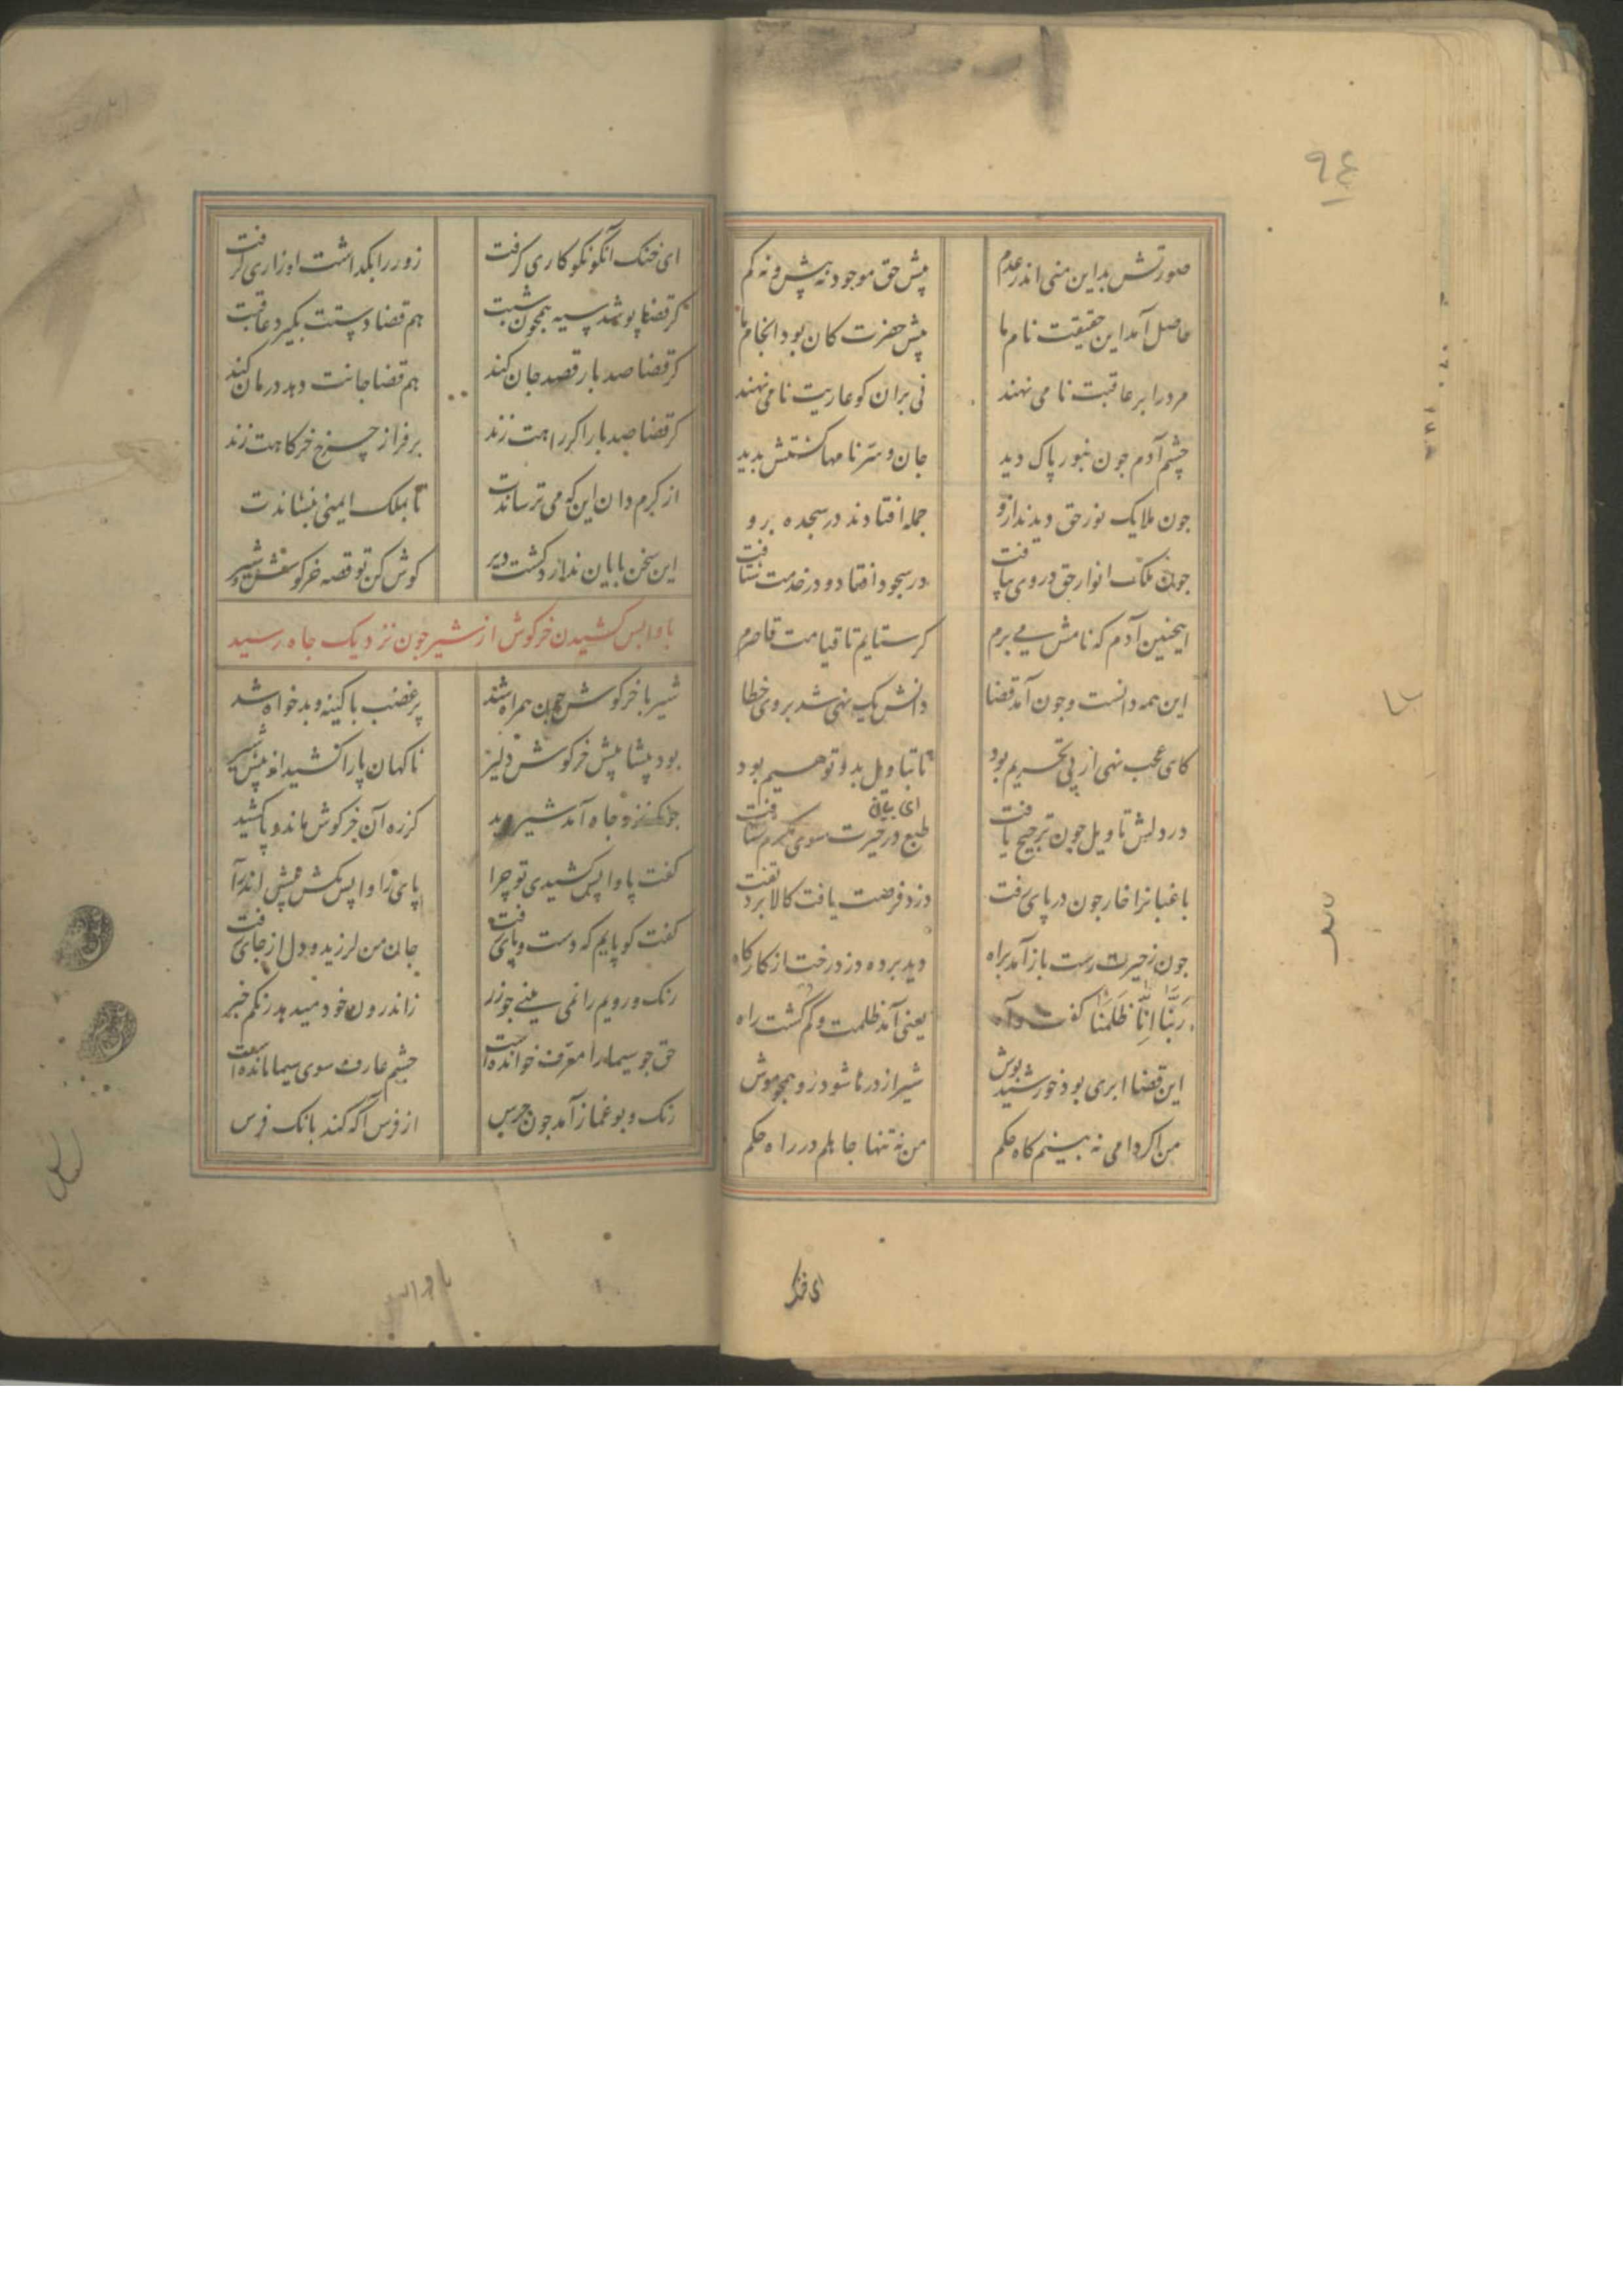 ٩٤
صورتش بد این منی اندر عدم پیش حق موجود نه بیش و نه کم
حاصل آمد این حقیقت نام ما پیش حضرت کان بود انجام ما
مرد را بر عاقبت نامی نهند نی بران کو عاریت نامی نهند
چشم آدم جون بنور پاک دید جان و سر نامها کشتش بدید
جون ملایک نور حق دیدند ازو جمله افتادند در سجده برو
جون ملک انوار حق در وی بیافت در سجود افتاد و در خدمت شتافت
اینجنین آدم که نامش می برم کر ستایم تا قیامت قاصرم
این همه دانست و جون آمد قضا دانش یک نهی شد بر وی خطا
کای عجب نهی از پی تحریم بود تا بتاویل بد و توهیم بود
در دلش تاویل جون ترجیح یافت طبع در حیرت سوی کندم شتافت
باغبانرا خار جون در پای رفت دزد فرصت یافت کالا برد تفت
جون ز حیرت رست باز آمد براه دید برده دزد رخت از کارکاه
رَبَّنَا اِنَّا ظَلَمْنَا کفت و آه یعنی آمد ظلمت و کم کشت راه
این قضا ابری بود خورشید پوش شیر و اژدرها شود زو همجو موش
من اکر دامی نه بینم کاه حکم من نه تنها جاهلم در راه حکم
ای خنک
ای خنک آنکو نکو کاری کرفت زور را بکذاشت او زاری کرفت
کر قضا پوشد سیه همجون شبت هم قضا دستت بکیرد عاقبت
کر قضا صد بار قصد جان کند هم قضا جانت دهد درمان کند
کر قضا صد بار اکر راهت زند بر فراز چرخ خرکاهت زند
از کرم دان این که می ترساندت تا بملک ایمنی بنشاندت
این سخن پایان ندارد کشت دیر کوش کن تو قصه خرکوش و شیر
پا واپس کشیدن خرکوش از شیر جون نزدیک جاه رسید
شیر با خرکوش جون همراه شد پر غضب با کینه و بد خواه شد
بود پیشا پیش خرکوش دلیر ناکهان پا را کشید از پیش شیر
جونکه نزد جاه آمد شیر دید کز ره آن خرکوش ماند و پا کشید
کفت پا واپس کشیدی تو چرا پای را واپس مکش پیش اندرآ
کفت کو پایم که دست و پای رفت جان من لرزید و دل از جای رفت
رنک و رویم را نمی بینی جو زر ز اندرون خود میدهد رنکم خبر
حق جو سیما را معرف خوانده است چشم عارف سوی سیما مانده است
رنک و بو غماز آمد جون جرس از فرس آکه کند بانک فرس
پا واپس